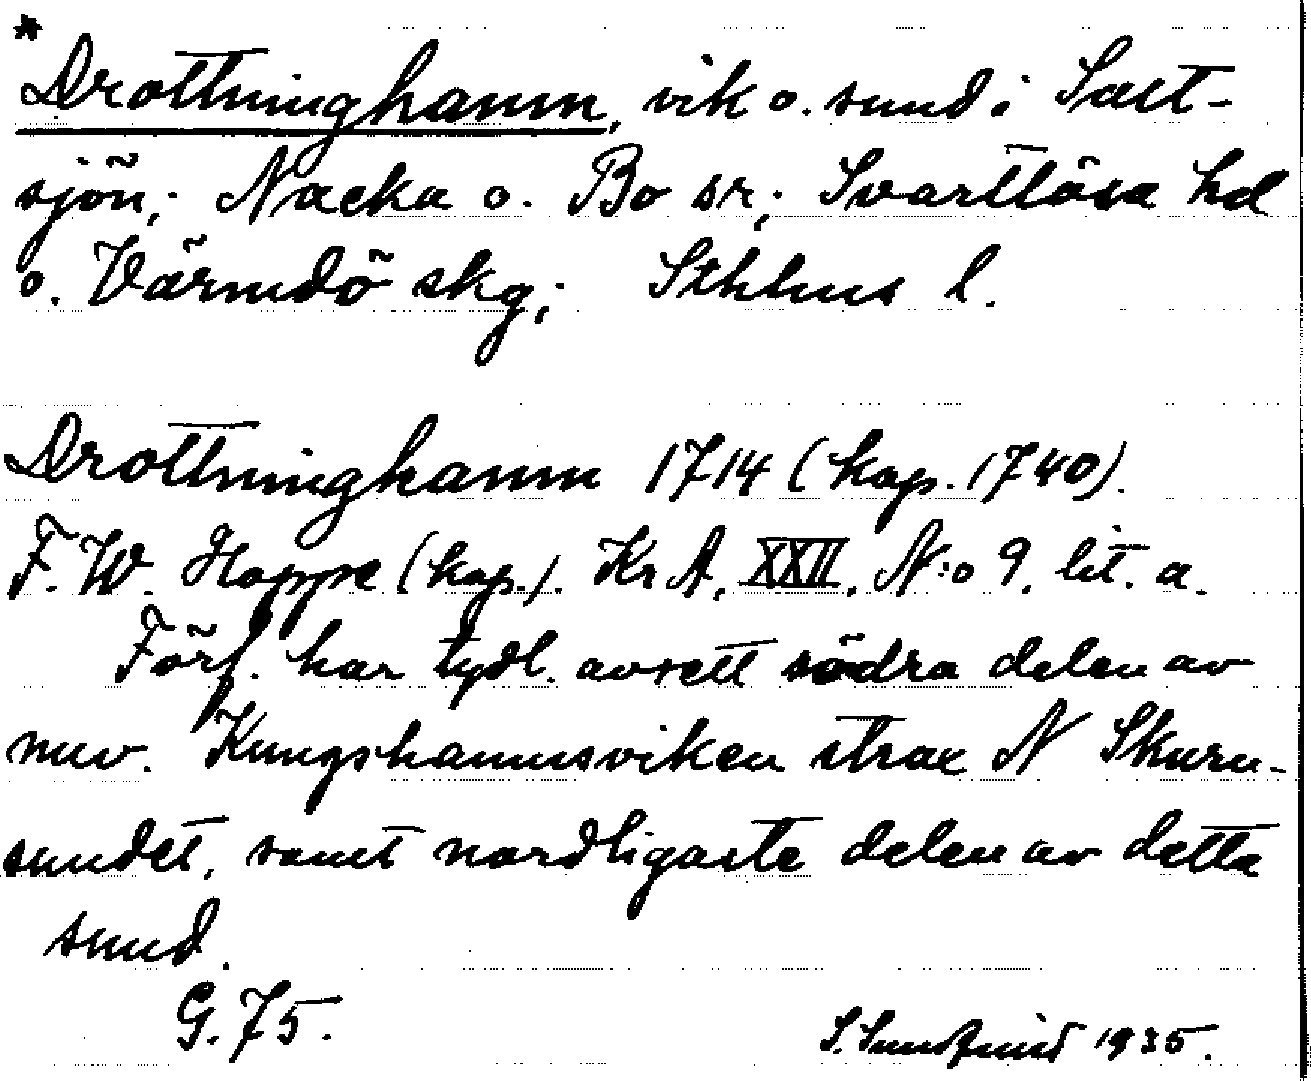 * Drottninghamn, vik o. sund i Salt-
sjön; Nacka o. Bo sr; Svartlösa hd
o. Värmdö skg; Sthlms l.
Drottninghamn 1714 (kop. 1740).
F. W. Hoppe (kop.). Kr A, XXII, N:o 9, lit. a.
Förf. har tydl. avsett södra delen av
nuv. Kungshamnsviken strax N Skuru-
sundet, samt nordligaste delen av detta
sund.
G. 75.
1935.